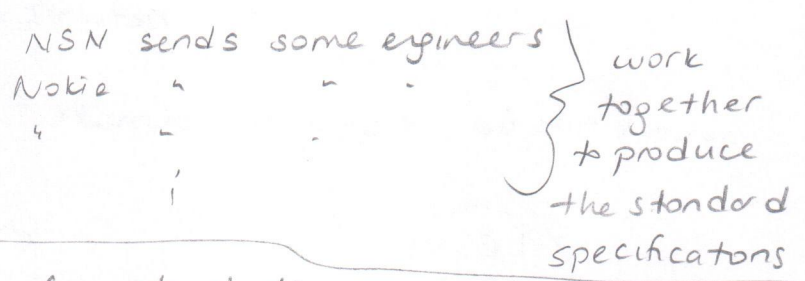 NSN sends some engineers
Nokia " " "
" " "
work
together
to produce
the standard
specificatons